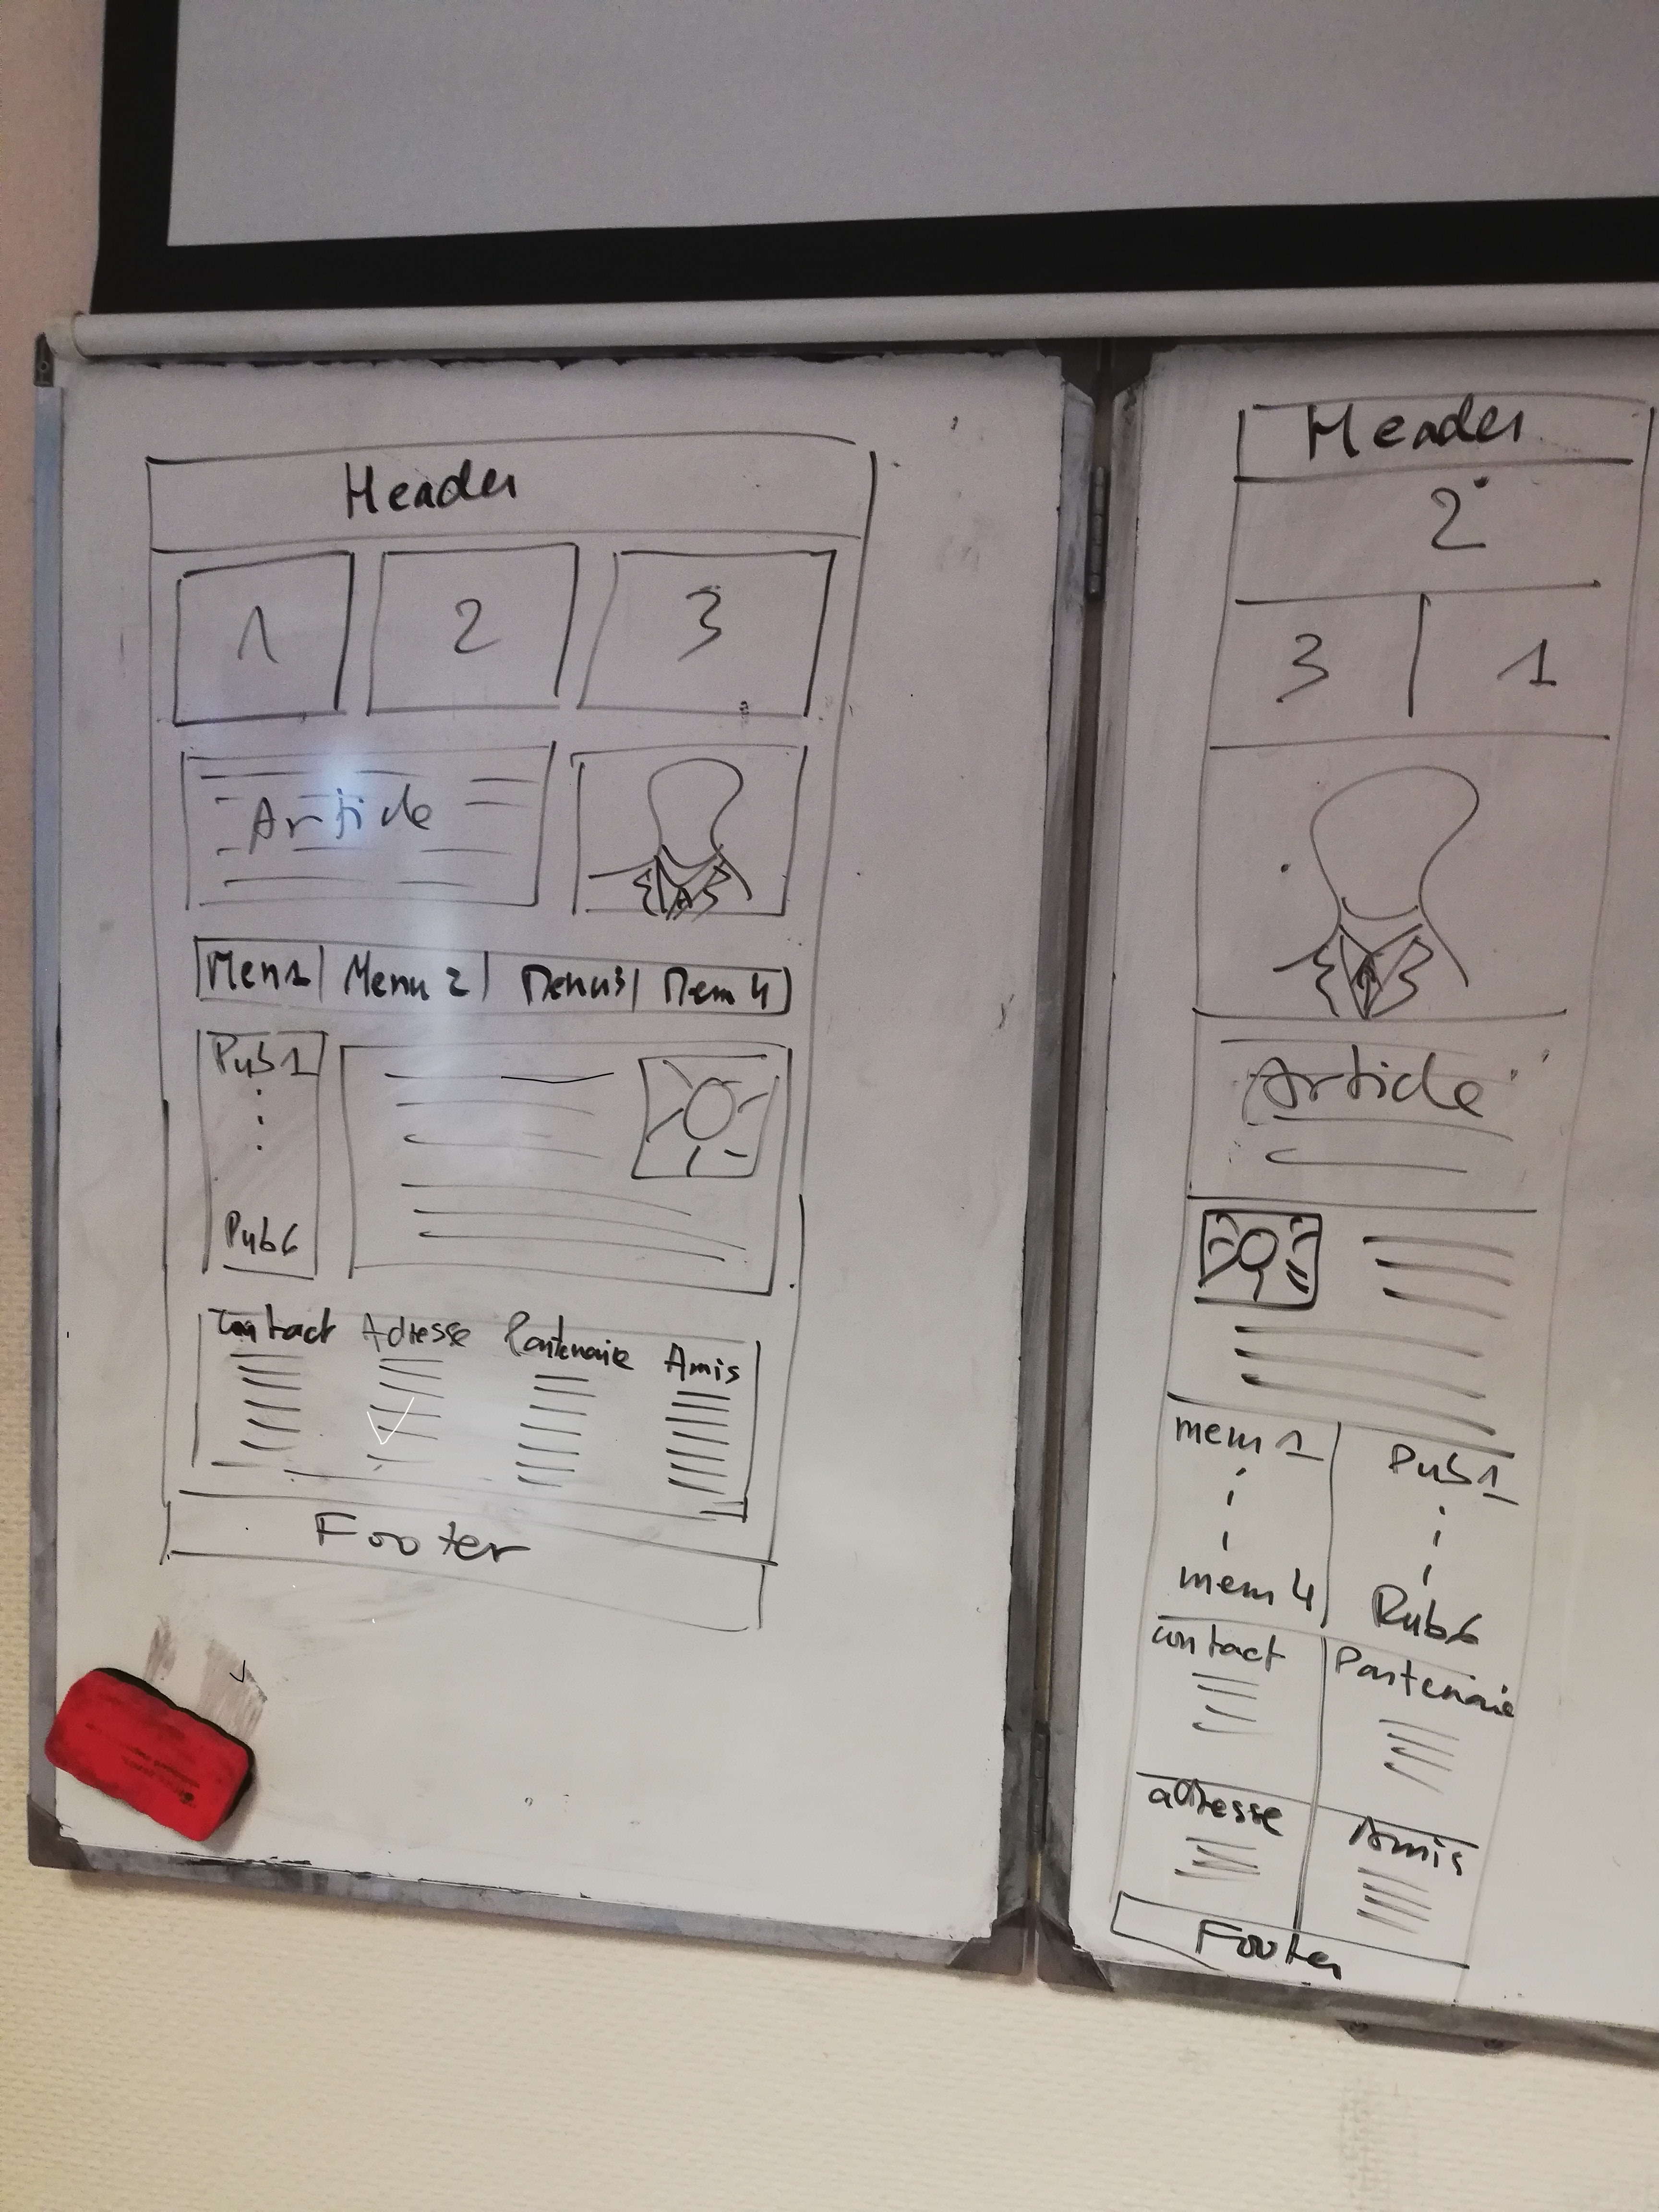 Header
1 2 3
Article
Men1 Menu 2 Menu3 Menu 4
Pub1
Pub6
Contact Adresse Partenaire Amis
Footer
Header
2
3 1
Article
menu 1 Pub1
menu 4 Rub6
contact Partenaire
adresse Amis
Footer